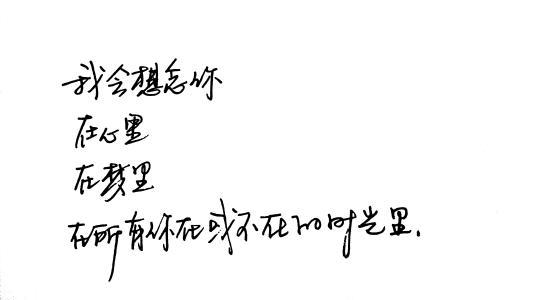 我会想念你
在心里
在梦里
在所有你在或不在的时光里.